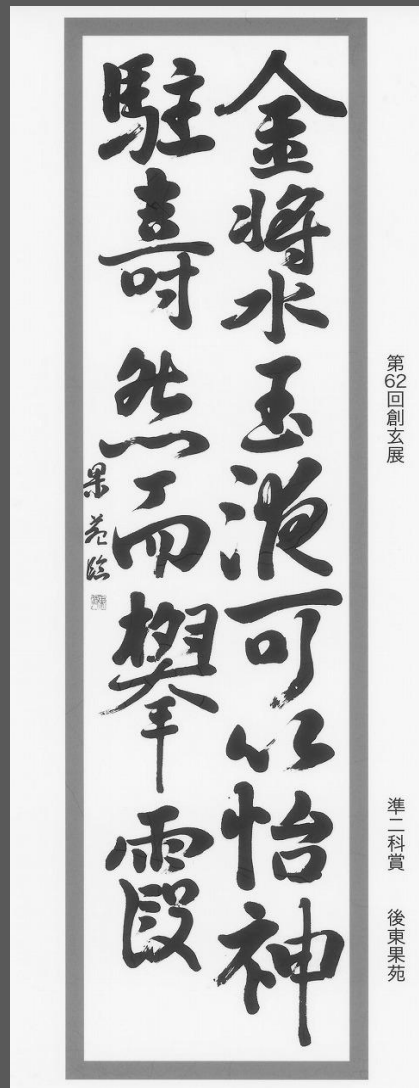 第62回創玄展
準二科賞　後東果苑
金漿玉液可以怡神
駐壽然而攀霞
果苑臨